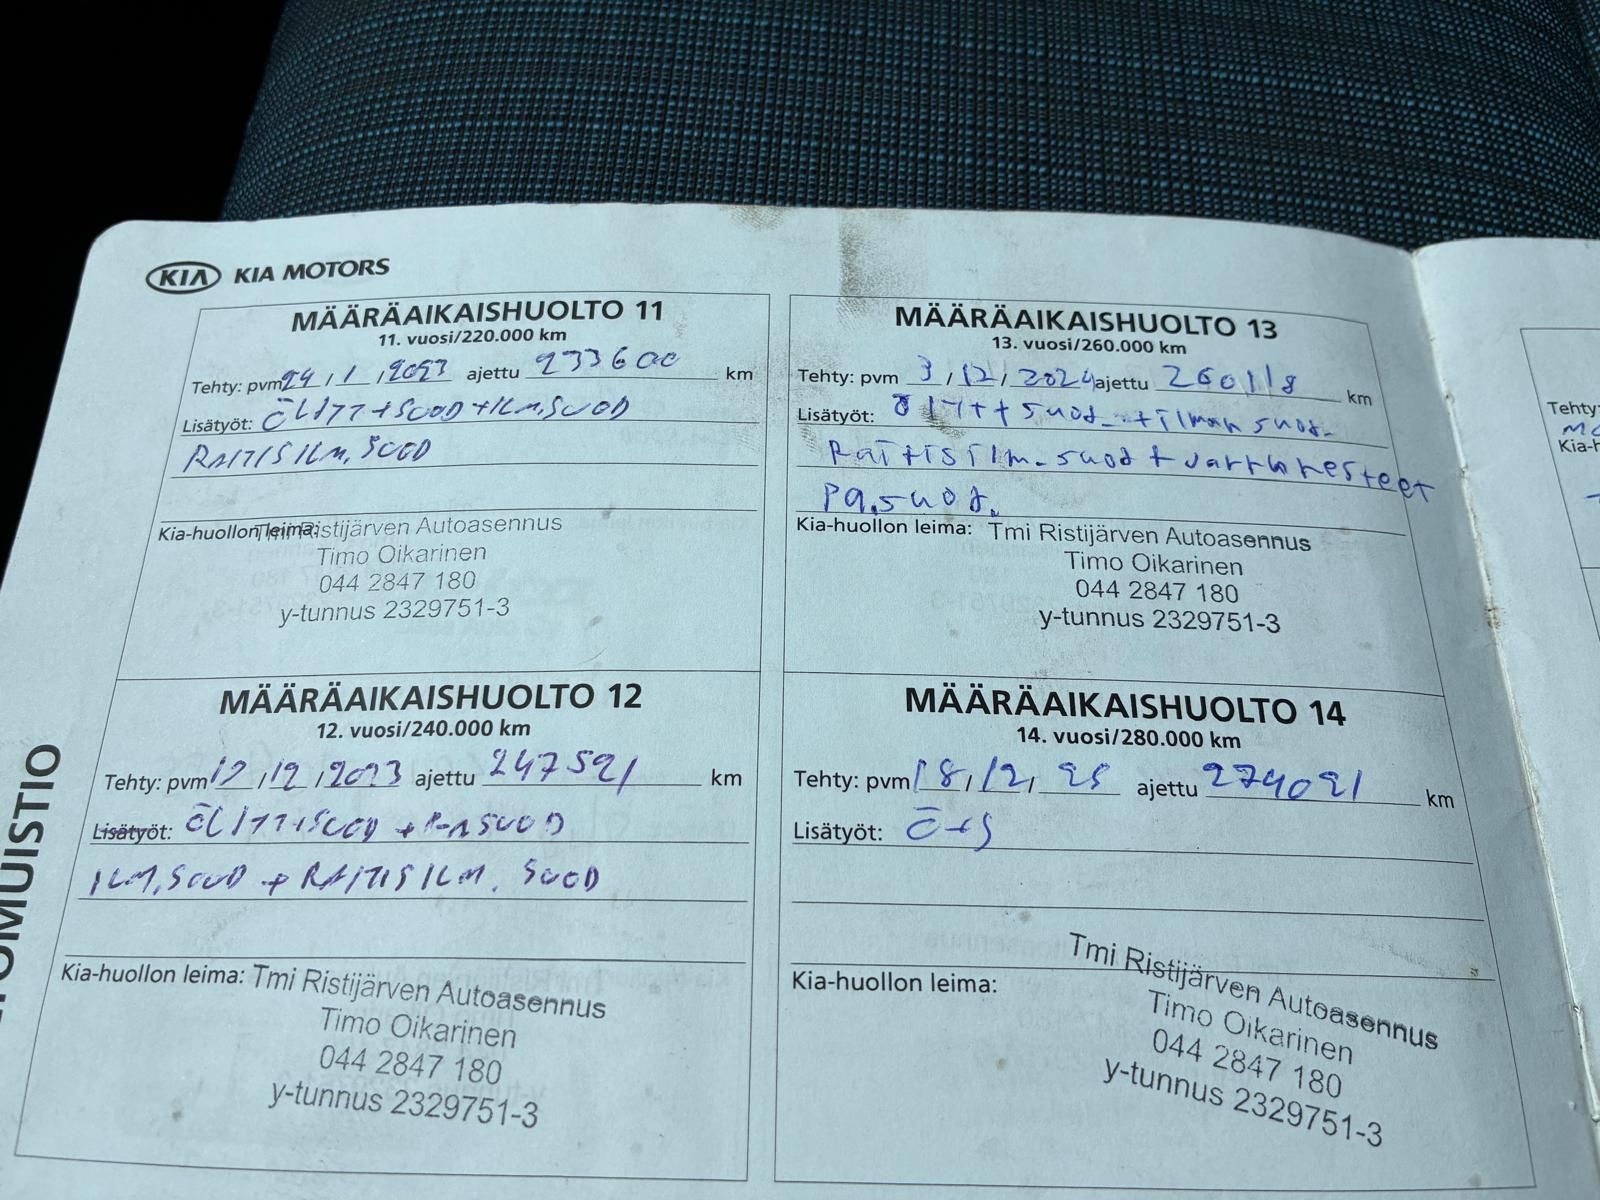 KIA KIA MOTORS
MÄÄRÄAIKAISHUOLTO 11
11. vuosi/220.000 km
Tehty: pvm 24 / 1 / 2023 ajettu 233600 km
Lisätyöt: ÖLJYT + SUOD + ILM.SUOD
RAITIS ILM. SUOD
Kia-huollon leima:
Tmi Ristijärven Autoasennus
Timo Oikarinen
044 2847 180
y-tunnus 2329751-3
MÄÄRÄAIKAISHUOLTO 12
12. vuosi/240.000 km
Tehty: pvm 12 / 12 / 2023 ajettu 247521 km
Lisätyöt: ÖLJYT + SUOD + PA SUOD
ILM.SUOD + RAITIS ILM. SUOD
Kia-huollon leima: Tmi Ristijärven Autoasennus
Timo Oikarinen
044 2847 180
y-tunnus 2329751-3
MÄÄRÄAIKAISHUOLTO 13
13. vuosi/260.000 km
Tehty: pvm 3 / 12 / 2024 ajettu 260118 km
Lisätyöt: ölJYt + suod. + ilman suod.
Raitis ilm. suod + jarrunesteet
pa.suod.
Kia-huollon leima: Tmi Ristijärven Autoasennus
Timo Oikarinen
044 2847 180
y-tunnus 2329751-3
MÄÄRÄAIKAISHUOLTO 14
14. vuosi/280.000 km
Tehty: pvm 18 / 12 / 25 ajettu 274021 km
Lisätyöt: Ö+S
Kia-huollon leima:
Tmi Ristijärven Autoasennus
Timo Oikarinen
044 2847 180
y-tunnus 2329751-3
Tehty:
Kia-h